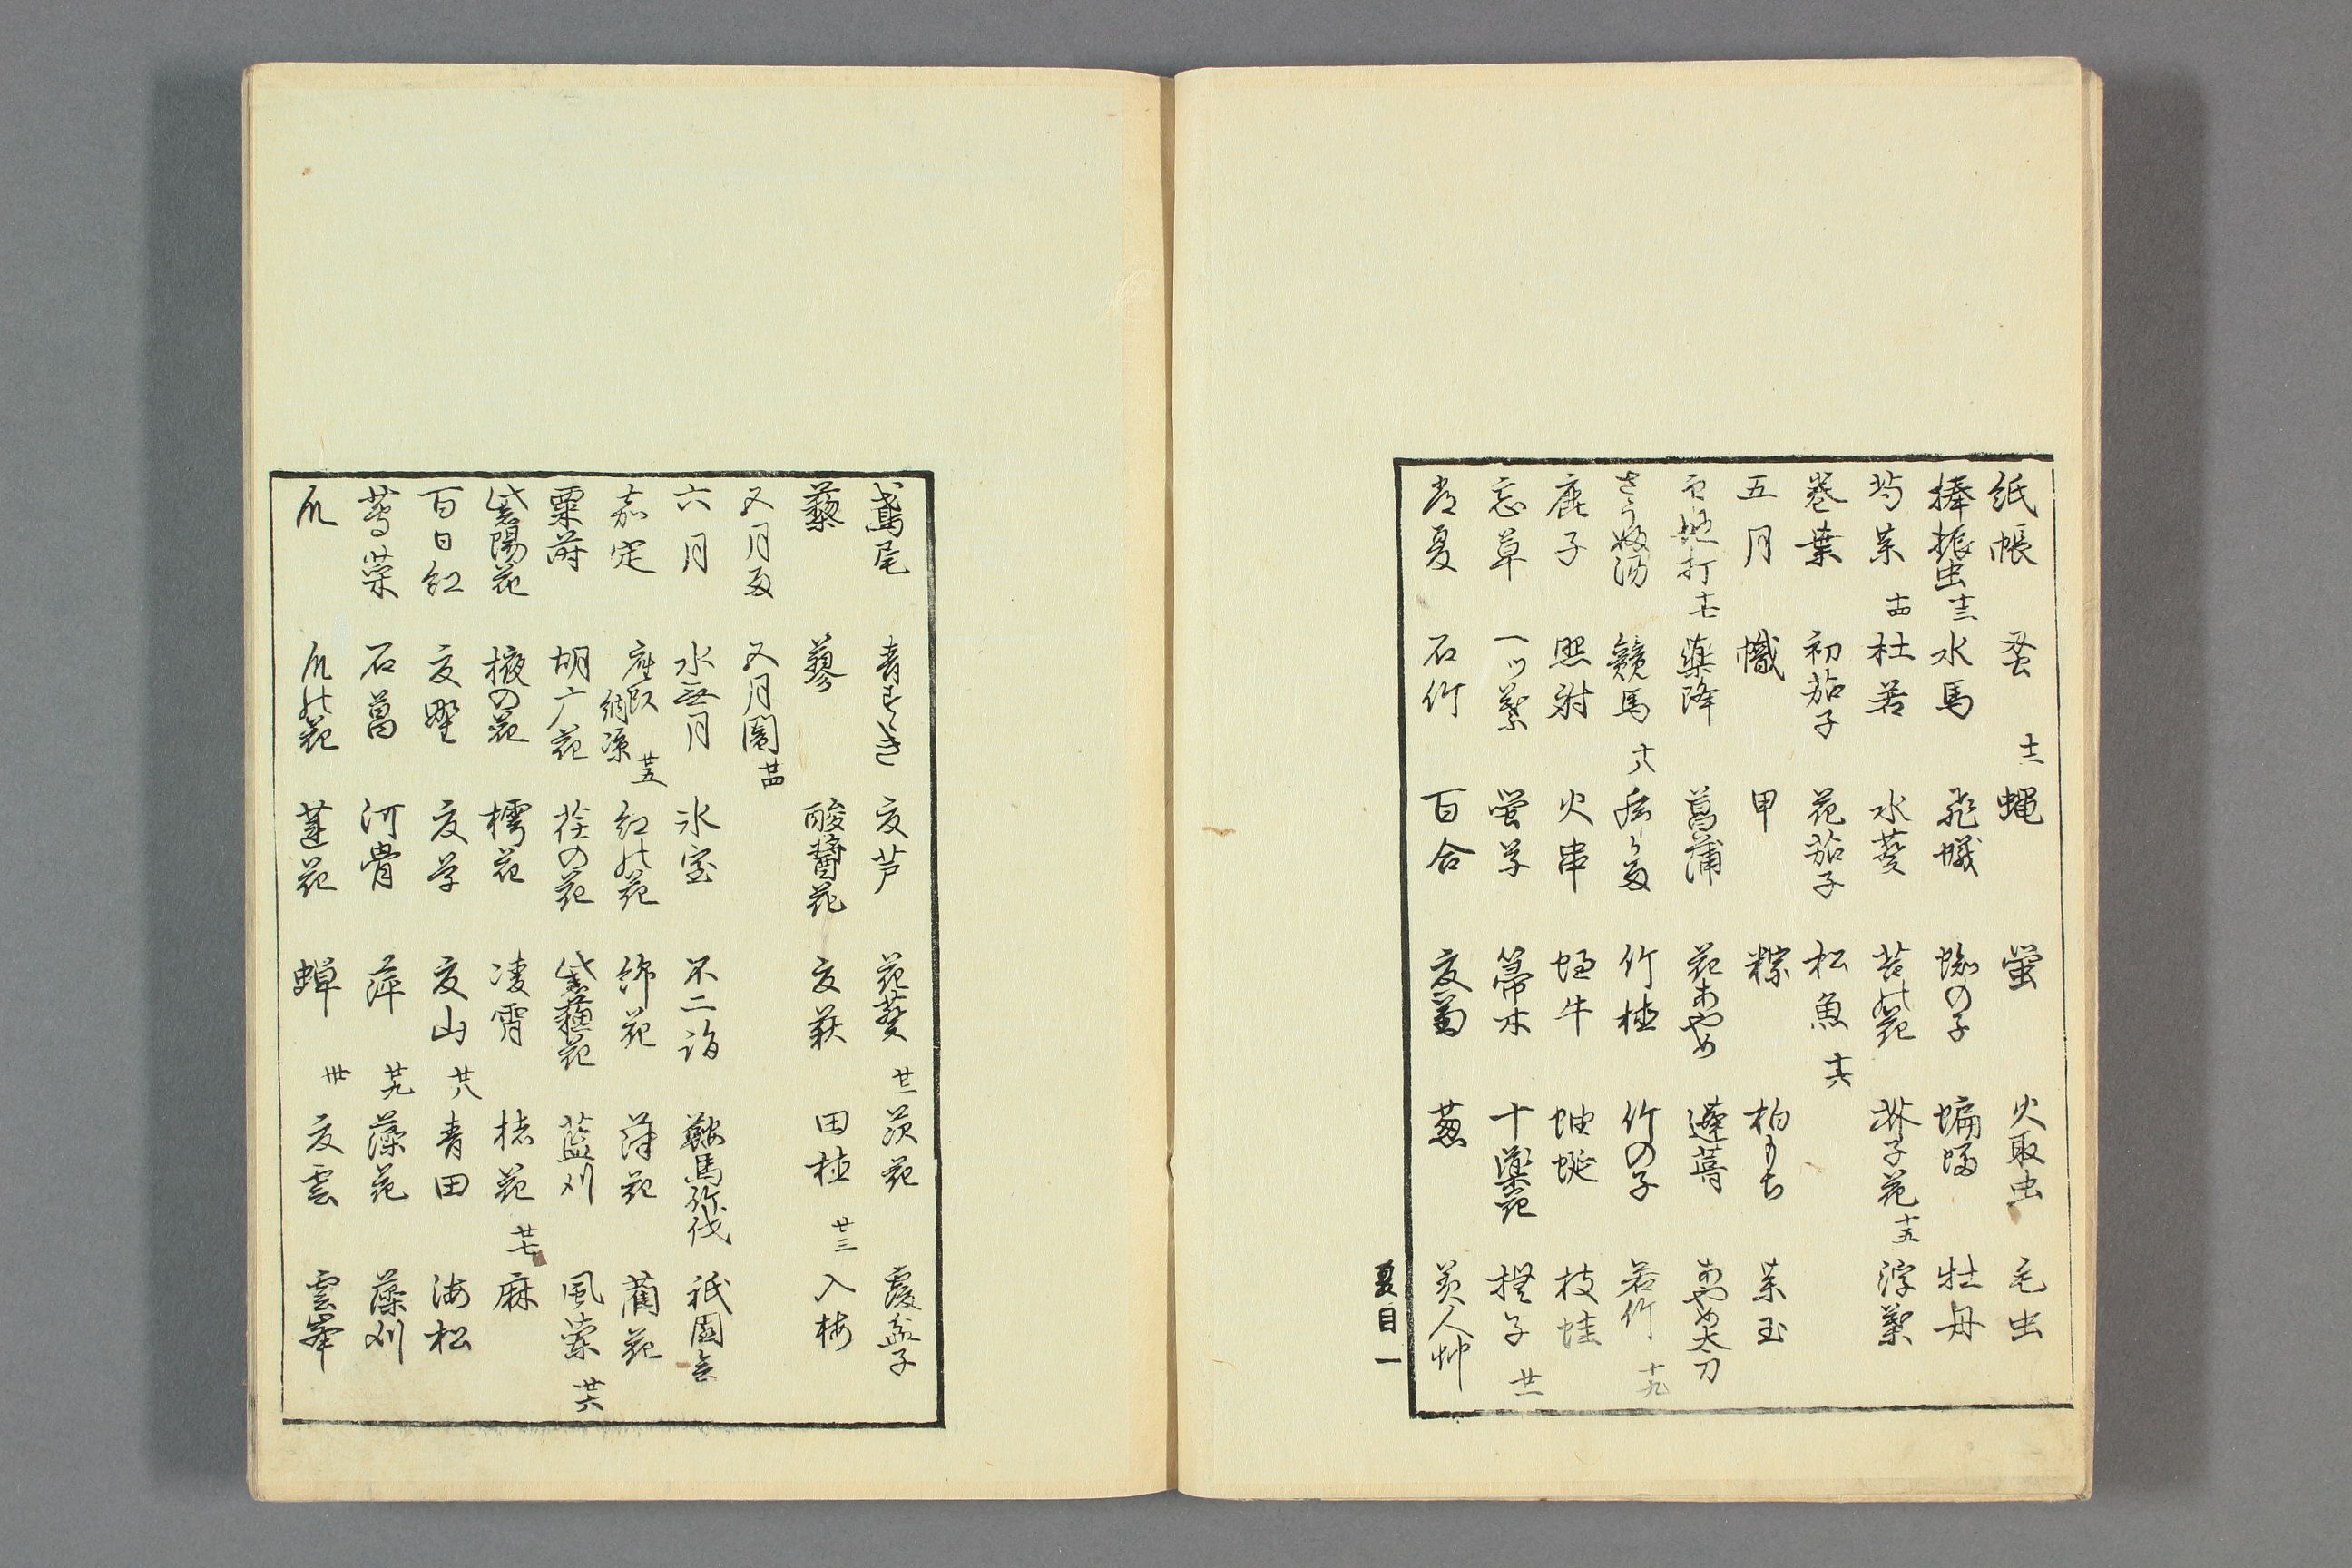 紙帳 蚤 十二 蠅 螢 火取虫 毛虫
捧振虫 十三 水馬 飛蟻 蜘の子 蝙蝠 牡丹
芍薬 十四 杜若 水葵 苔の花 芥子花 十五 浮葉
巻葉 初茄子 花茄子 松魚 十六
五月 幟 甲 粽 柏もち 薬玉
印地打 十七 薬降 菖蒲 花あやめ 蓬莟 あやめ太刀
さうぶ湯 競馬 十八 虎か雨 竹植 竹の子 若竹 十九
鹿子 照射 火串 蝸牛 蚰蜒 枝蛙
忘草 一ツ葉 螢草 箒木 十薬花 樫子 廿一
常夏 石竹 百合 夏菊 葱 美人艸
夏目 一
鳶尾 青すゝき 夏芦 花葵 廿二 茨花 覆盆子
藜 蓼 酸醤花 夏萩 田植 廿三 入梅
五月雨 五月闇 廿四
六月 水無月 氷室 不二詣 鞍馬竹伐 祇園会
嘉定 座頭納凉 廿五 紅の花 綿花 蒲花 藺花
粟蒔 胡广花 荏の花 紫蘓花 藍刈 風蘭 廿六
紫陽花 椒の花 樗花 凌霄 桔花 廿七 麻
百日紅 夏野 夏草 夏山 廿八 青田 海松
蓴菜 石菖 河骨 萍 廿九 藻花 藻刈
瓜 瓜の花 蓮花 蝉 卅 夏雲 雲峯